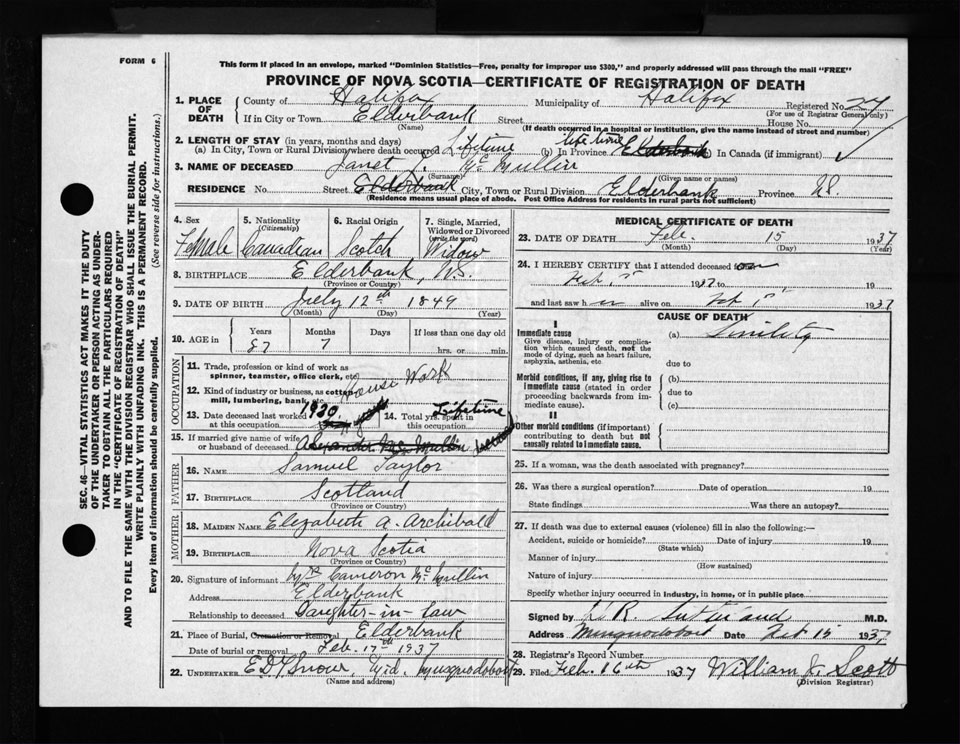 FORM 6
This form if placed in an envelope, marked "Dominion Statistics—Free, penalty for improper use $300," and properly addressed will pass through the mail "FREE"
PROVINCE OF NOVA SCOTIA—CERTIFICATE OF REGISTRATION OF DEATH
SEC. 46—VITAL STATISTICS ACT MAKES IT THE DUTY
OF THE UNDERTAKER OR PERSON ACTING AS UNDER-
TAKER TO OBTAIN ALL THE PARTICULARS REQUIRED
IN THE "CERTIFICATE OF REGISTRATION OF DEATH"
AND TO FILE THE SAME WITH THE DIVISION REGISTRAR WHO SHALL ISSUE THE BURIAL PERMIT.
WRITE PLAINLY WITH UNFADING INK. THIS IS A PERMANENT RECORD.
Every item of information should be carefully supplied. (See reverse side for instructions.)
1. PLACE OF DEATH County of Halifax Municipality of Halifax Registered No. 24
(For use of Registrar General only)
If in City or Town Elderbank Street House No.
(Name) (If death occurred in a hospital or institution, give the name instead of street and number)
2. LENGTH OF STAY (in years, months and days)
(a) In City, Town or Rural Division where death occurred Lifetime (b) In Province life time Elderbank (c) In Canada (if immigrant)
3. NAME OF DECEASED Janet Mc Mullin
(Surname) (Given name or names)
RESIDENCE No. Street Elderbank City, Town or Rural Division Elderbank Province N.S.
(Residence means usual place of abode. Post Office Address for residents in rural parts not sufficient)
4. Sex Female
5. Nationality (Citizenship) Canadian
6. Racial Origin Scotch
7. Single, Married, Widowed or Divorced (write the word) Widow
8. BIRTHPLACE Elderbank, N.S.
(Province or Country)
9. DATE OF BIRTH July 12th 1849
(Month) (Day) (Year)
10. AGE in Years Months Days If less than one day old
87 7 hrs. or min.
OCCUPATION
11. Trade, profession or kind of work as spinner, teamster, office clerk, etc.
12. Kind of industry or business, as cotton-mill, lumbering, bank, etc. House Work
13. Date deceased last worked at this occupation 1930
14. Total yrs. spent in this occupation Lifetime
15. If married give name of wife or husband of deceased Alexander Mc Mullin
FATHER
16. NAME Samuel Taylor
17. BIRTHPLACE Scotland
(Province or Country)
MOTHER
18. MAIDEN NAME Elezabeth A. Archibald
19. BIRTHPLACE Nova Scotia
(Province or Country)
20. Signature of informant Cameron Mc Mullin
Address Elderbank
Relationship to deceased Daughter-in-law
21. Place of Burial, Cremation or Removal Elderbank
Date of burial or removal Feb. 17th 1937
22. UNDERTAKER Musquodoboit
(Name and address)
MEDICAL CERTIFICATE OF DEATH
23. DATE OF DEATH Feb. 15 1937
(Month) (Day) (Year)
24. I HEREBY CERTIFY that I attended deceased on
1937 to 19
and last saw h er alive on 1937
CAUSE OF DEATH
I
Immediate cause (a) Senility
Give disease, injury or complication which caused death, not the mode of dying, such as heart failure, asphyxia, asthenia, etc
due to
Morbid conditions, if any, giving rise to immediate cause (stated in order proceeding backwards from immediate cause). (b)
due to
(c)
II
Other morbid conditions (if important) contributing to death but not causally related to immediate cause.
25. If a woman, was the death associated with pregnancy?
26. Was there a surgical operation? Date of operation 19
State findings Was there an autopsy?
27. If death was due to external causes (violence) fill in also the following:—
Accident, suicide or homicide? Date of injury 19
(State which)
Manner of injury
(How sustained)
Nature of injury
Specify whether injury occurred in industry, in home, or in public place
Signed by R. M.D.
Address Musquodoboit Date Feb 15 1937
28. Registrar's Record Number
29. Filed Feb. 16th 1937 William J. Scott
(Division Registrar)